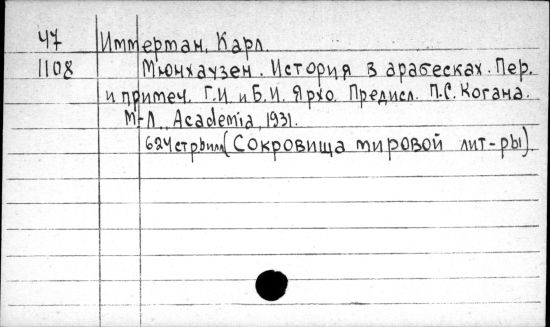 47 Иммерман, Карл.
1108 Мюнхаузен. История в арабесках. Пер.
и примеч. Г.И. и Б.И. Ярхо. Предисл. П.С. Когана.
М-Л., Academia, 1931.
624 стр. (Сокровища мировой лит-ры).